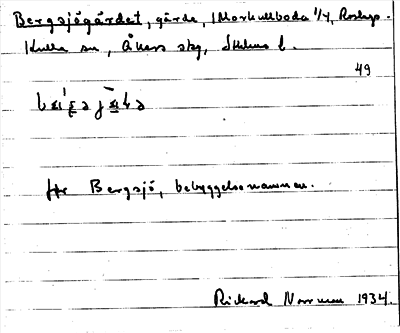 Bergsjögärdet, gärde, Morkullboda 1/4, Roslags-
Kulla sn, Åkers skg, Sthlms l.
49
Jfr Bergsjö, bebyggelsenamnen.
Rickard Norrman 1934.